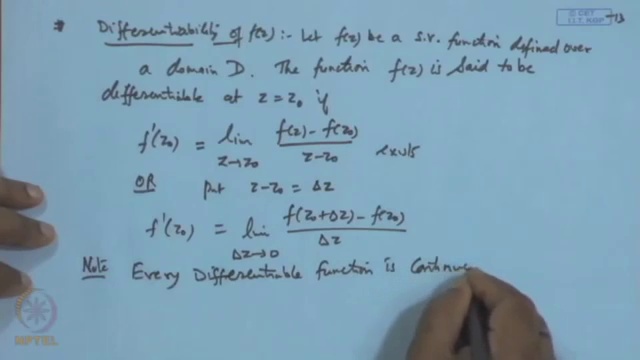 © CET
I.I.T. KGP
* Differentiability of f(z) :- Let f(z) be a s.v. function defined over
a domain D. The function f(z) is said to be
differentiable at z = z₀ if
f'(z₀) = lim z→z₀ f(z) - f(z₀) / z - z₀ exists
OR put z - z₀ = Δz
f'(z₀) = lim Δz→0 f(z₀+Δz) - f(z₀) / Δz
Note Every Differentiable function is Continuo
NPTEL